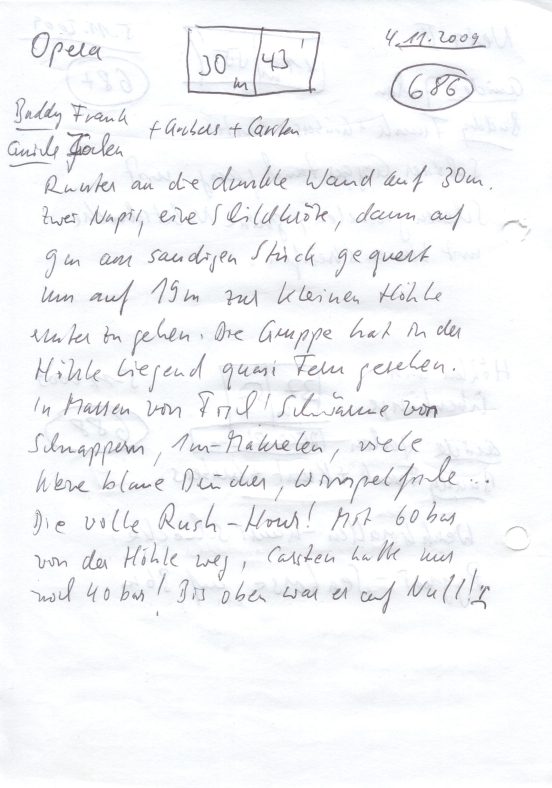 Opera
30 m 43'
4.11.2009
686
Buddy Frank + Barbara + Carsten
Guide
Runter an die dunkle Wand auf 30m.
Zwei Napis, eine Schildkröte, dann auf
9m am sandigen Stück gequert
um auf 19m zur kleinen Höhle
runter zu gehen. Die Gruppe hat in der
Höhle liegend quasi Fern gesehen.
In Massen von Fisch! Schwärme von
Schnappern, 1m-Makrelen, viele
kleine blaue Drücker, Wimpelfische...
Die volle Rush-Hour! Mit 60 bar
von der Höhle weg, Carsten hatte nur
noch 40 bar! Bis oben war er auf Null!